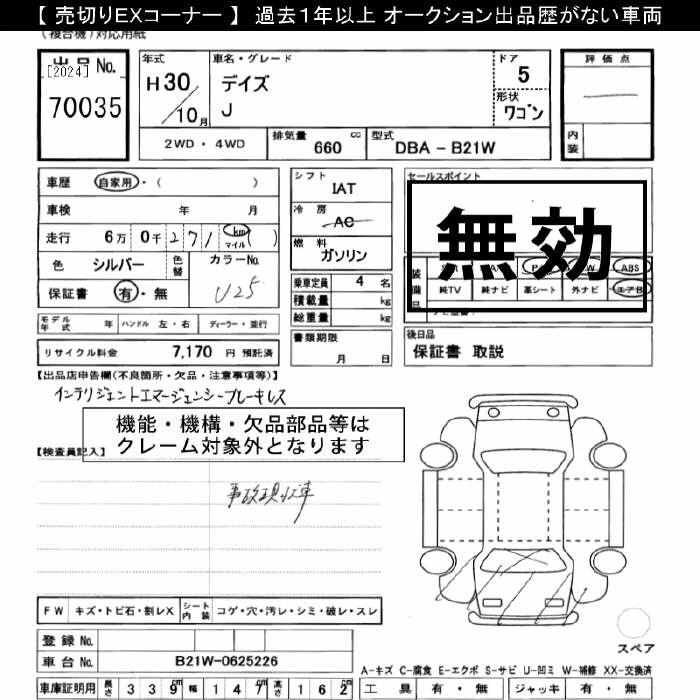 【 売切りEXコーナー 】 過去1年以上 オークション出品歴がない車両
(複合機)対応用紙
出品 No.
[2024]
70035
年式
H 30
10 月
車名・グレード
デイズ
J
ドア
5
形状
ワゴン
評価点
内装
2WD ・ 4WD
排気量 660 cc
型式 DBA - B21W
車歴 自家用 ・ ( )
車検 年 月
走行 6万 0千 271 km マイル ( )
色 シルバー 色替 カラーNo.
U25
保証書 有 ・ 無
シフト
IAT
冷房
AC
燃料
ガソリン
乗車定員 4 名
積載量 kg
総重量 kg
セールスポイント
無効
ABS
純TV 純ナビ 革シート 外ナビ エアB
モデル年式 年 ハンドル 左・右 ディーラー・並行
リサイクル料金 7,170 円 預託済
書類期限
月 日
後日品
保証書 取説
【出品店申告欄(不良箇所・欠品・注意事項等)】
インテリジェントエマージェンシーブレーキレス
機能・機構・欠品部品等は
クレーム対象外となります
【検査員記入】
事故現状車
FW キズ・トビ石・割レX シート内装 コゲ・穴・汚レ・シミ・破レ・スレ
登録 No.
車台 No. B21W-0625226
スペア
A-キズ C-腐食 E-エクボ S-サビ U-凹ミ W-補修 XX-交換済
車庫証明用 長さ 3 3 9 cm 幅 1 4 7 cm 高さ 1 6 2 cm
工具 有 ・ 無 ジャッキ 有 ・ 無